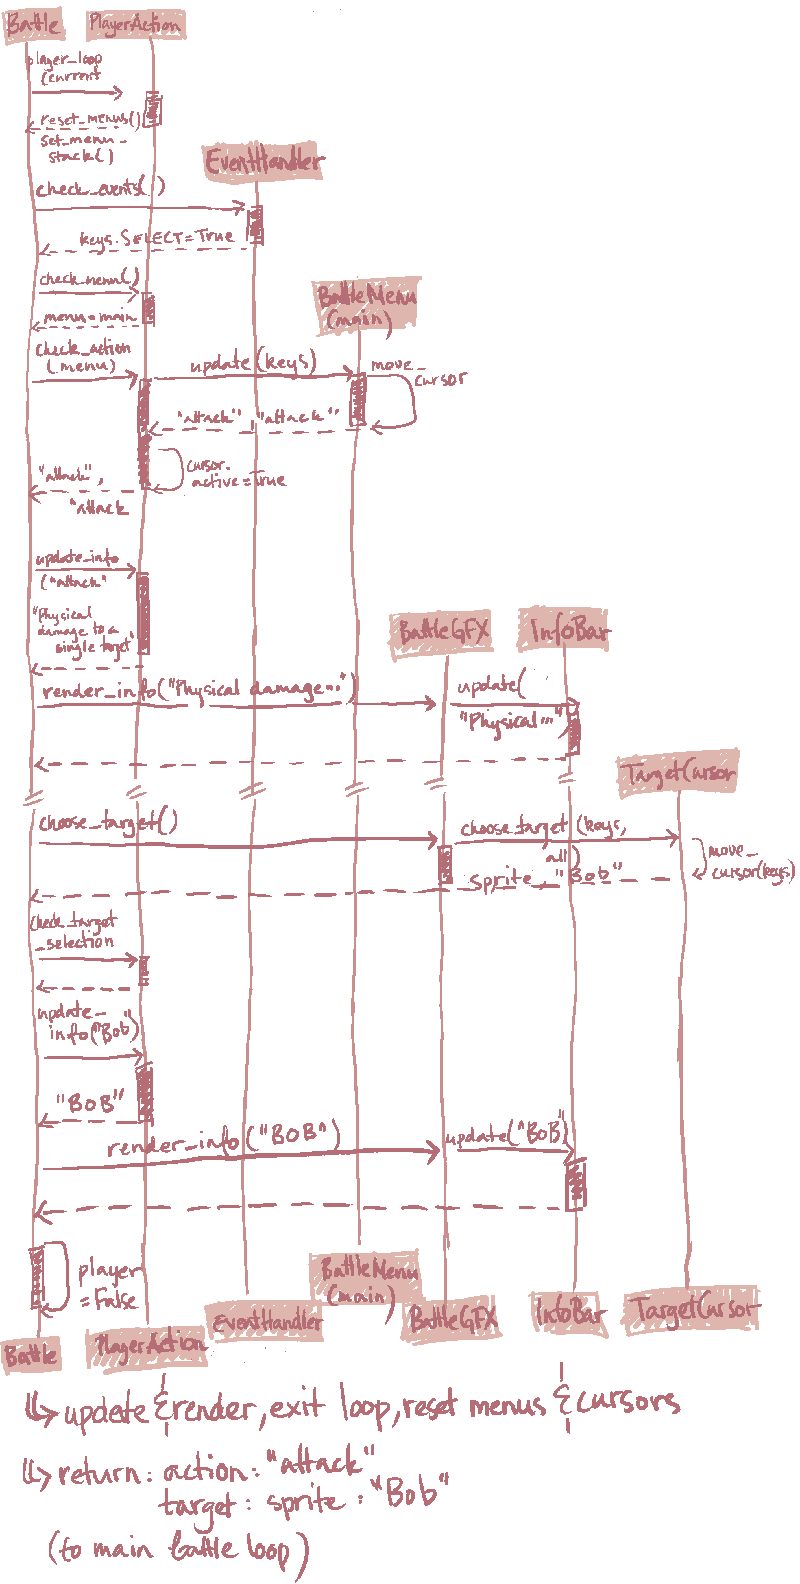 Battle PlayerAction
player_loop
(current
reset_menus()
set_menu_
stack()
EventHandler
check_events()
keys.SELECT=True
check_menu()
BattleMenu
(main)
menu=main
check_action
(menu)
update(keys)
move_
cursor
"attack", "attack"
cursor.
active=True
"attack",
"attack
update_info
("attack"
"Physical
damage to a
single target"
BattleGFX InfoBar
render_info("Physical damage...")
update(
"Physical...")
TargetCursor
choose_target()
choose_target (keys,
all)
move_
cursor(keys)
sprite, "Bob"
check_target
_selection
update_
info("Bob")
"BOB"
render_info("BOB")
update("BOB")
player
=False
BattleMenu
(main)
Battle PlayerAction EventHandler BattleGFX InfoBar TargetCursor
↳ update & render, exit loop, reset menus & cursors
↳ return: action: "attack"
target: sprite: "Bob"
(to main battle loop)